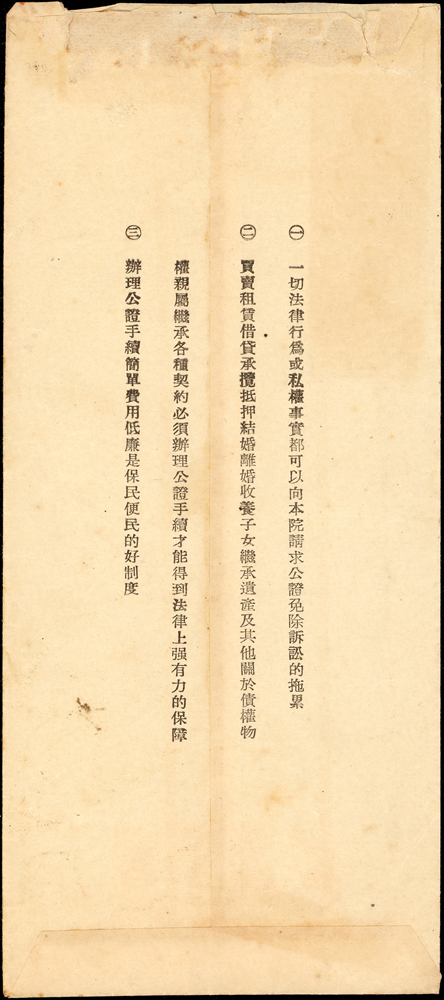 ㊀ 一切法律行爲或私權事實都可以向本院請求公證免除訴訟的拖累
㊁ 買賣租賃借貸承攬抵押結婚離婚收養子女繼承遺產及其他關於債權物
權親屬繼承各種契約必須辦理公證手續才能得到法律上强有力的保障
㊂ 辦理公證手續簡單費用低廉是保民便民的好制度